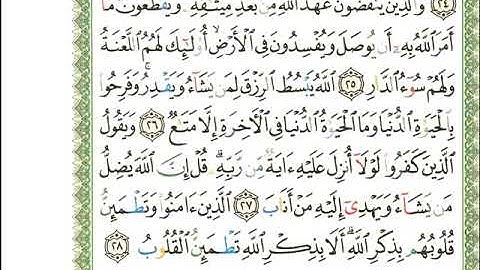 ﴿٢٤﴾ وَالَّذِينَ يَنقُضُونَ عَهْدَ اللَّهِ مِن بَعْدِ مِيثَاقِهِ وَيَقْطَعُونَ مَا
أَمَرَ اللَّهُ بِهِ أَن يُوصَلَ وَيُفْسِدُونَ فِي الْأَرْضِ أُولَٰئِكَ لَهُمُ اللَّعْنَةُ
وَلَهُمْ سُوءُ الدَّارِ ﴿٢٥﴾ اللَّهُ يَبْسُطُ الرِّزْقَ لِمَن يَشَاءُ وَيَقْدِرُ وَفَرِحُوا
بِالْحَيَاةِ الدُّنْيَا وَمَا الْحَيَاةُ الدُّنْيَا فِي الْآخِرَةِ إِلَّا مَتَاعٌ ﴿٢٦﴾ وَيَقُولُ
الَّذِينَ كَفَرُوا لَوْلَا أُنزِلَ عَلَيْهِ آيَةٌ مِّن رَّبِّهِ قُلْ إِنَّ اللَّهَ يُضِلُّ
مَن يَشَاءُ وَيَهْدِي إِلَيْهِ مَنْ أَنَابَ ﴿٢٧﴾ الَّذِينَ آمَنُوا وَتَطْمَئِنُّ
قُلُوبُهُم بِذِكْرِ اللَّهِ أَلَا بِذِكْرِ اللَّهِ تَطْمَئِنُّ الْقُلُوبُ ﴿٢٨﴾